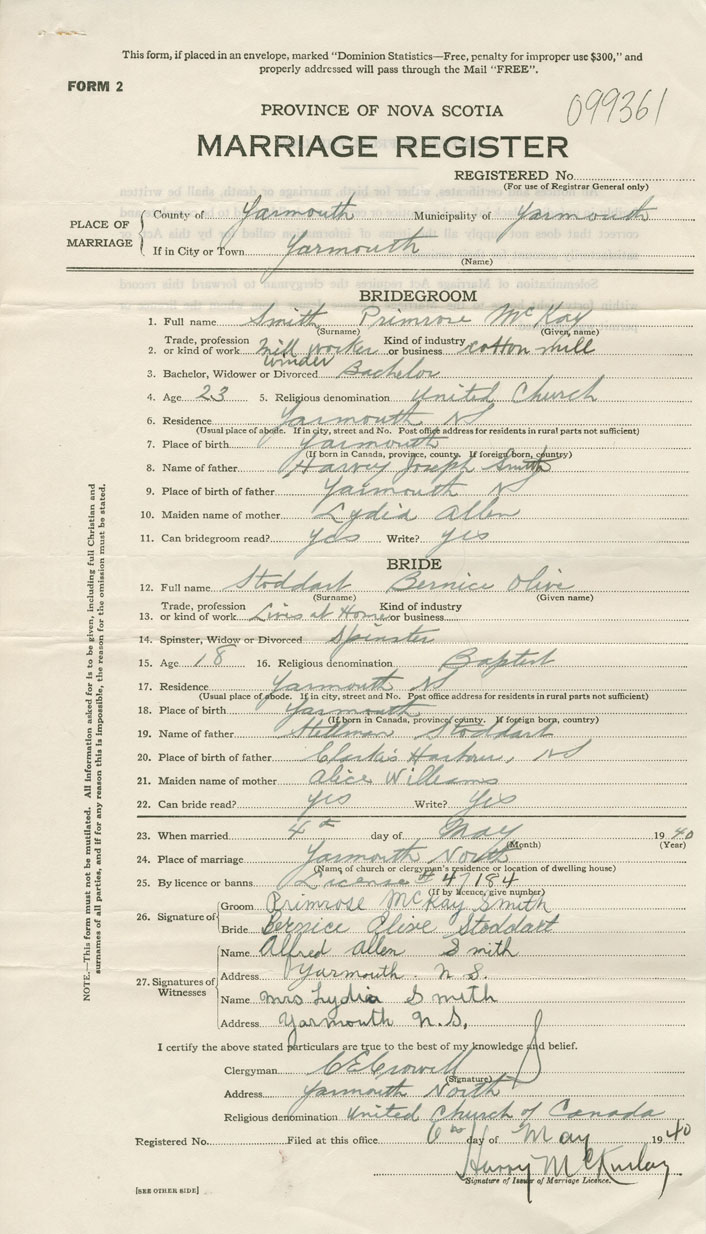 This form, if placed in an envelope, marked "Dominion Statistics—Free, penalty for improper use $300," and
properly addressed will pass through the Mail "FREE".
FORM 2
PROVINCE OF NOVA SCOTIA
099361
MARRIAGE REGISTER
REGISTERED No.
(For use of Registrar General only)
PLACE OF MARRIAGE
County of Yarmouth Municipality of Yarmouth
If in City or Town Yarmouth
(Name)
BRIDEGROOM
1. Full name Smith Primrose McKay
(Surname) (Given name)
2. Trade, profession or kind of work Mill Worker winder Kind of industry or business cotton mill
3. Bachelor, Widower or Divorced Bachelor
4. Age 23 5. Religious denomination United Church
6. Residence Yarmouth NS
(Usual place of abode. If in city, street and No. Post office address for residents in rural parts not sufficient)
7. Place of birth Yarmouth
(If born in Canada, province, county. If foreign born, country)
8. Name of father Harvey Joseph Smith
9. Place of birth of father Yarmouth NS
10. Maiden name of mother Lydia Allen
11. Can bridegroom read? yes Write? yes
BRIDE
12. Full name Stoddart Bernice Olive
(Surname) (Given name)
13. Trade, profession or kind of work Lives at Home Kind of industry or business
14. Spinster, Widow or Divorced Spinster
15. Age 18 16. Religious denomination Baptist
17. Residence Yarmouth NS
(Usual place of abode. If in city, street and No. Post office address for residents in rural parts not sufficient)
18. Place of birth Yarmouth
(If born in Canada, province, county. If foreign born, country)
19. Name of father Stillman Stoddart
20. Place of birth of father Clark's Harbour, NS
21. Maiden name of mother Alice Williams
22. Can bride read? yes Write? yes
23. When married 4th day of May 1940
(Month) (Year)
24. Place of marriage Yarmouth North
(Name of church or clergyman's residence or location of dwelling house)
25. By licence or banns License # 47184
(If by licence, give number)
26. Signature of
Groom Primrose McKay Smith
Bride Bernice Olive Stoddart
27. Signatures of Witnesses
Name Alfred Allen Smith
Address Yarmouth. N.S.
Name Mrs Lydia Smith
Address Yarmouth N.S.
I certify the above stated particulars are true to the best of my knowledge and belief.
Clergyman C E Crowell
(Signature)
Address Yarmouth North
Religious denomination United Church of Canada
Registered No. Filed at this office 6th day of May 1940
Harry McKinlay
Signature of Issuer of Marriage Licence.
[SEE OTHER SIDE]
NOTE.—This form must not be mutilated. All information asked for is to be given, including full Christian and
surnames of all parties, and if for any reason this is impossible, the reason for the omission must be stated.